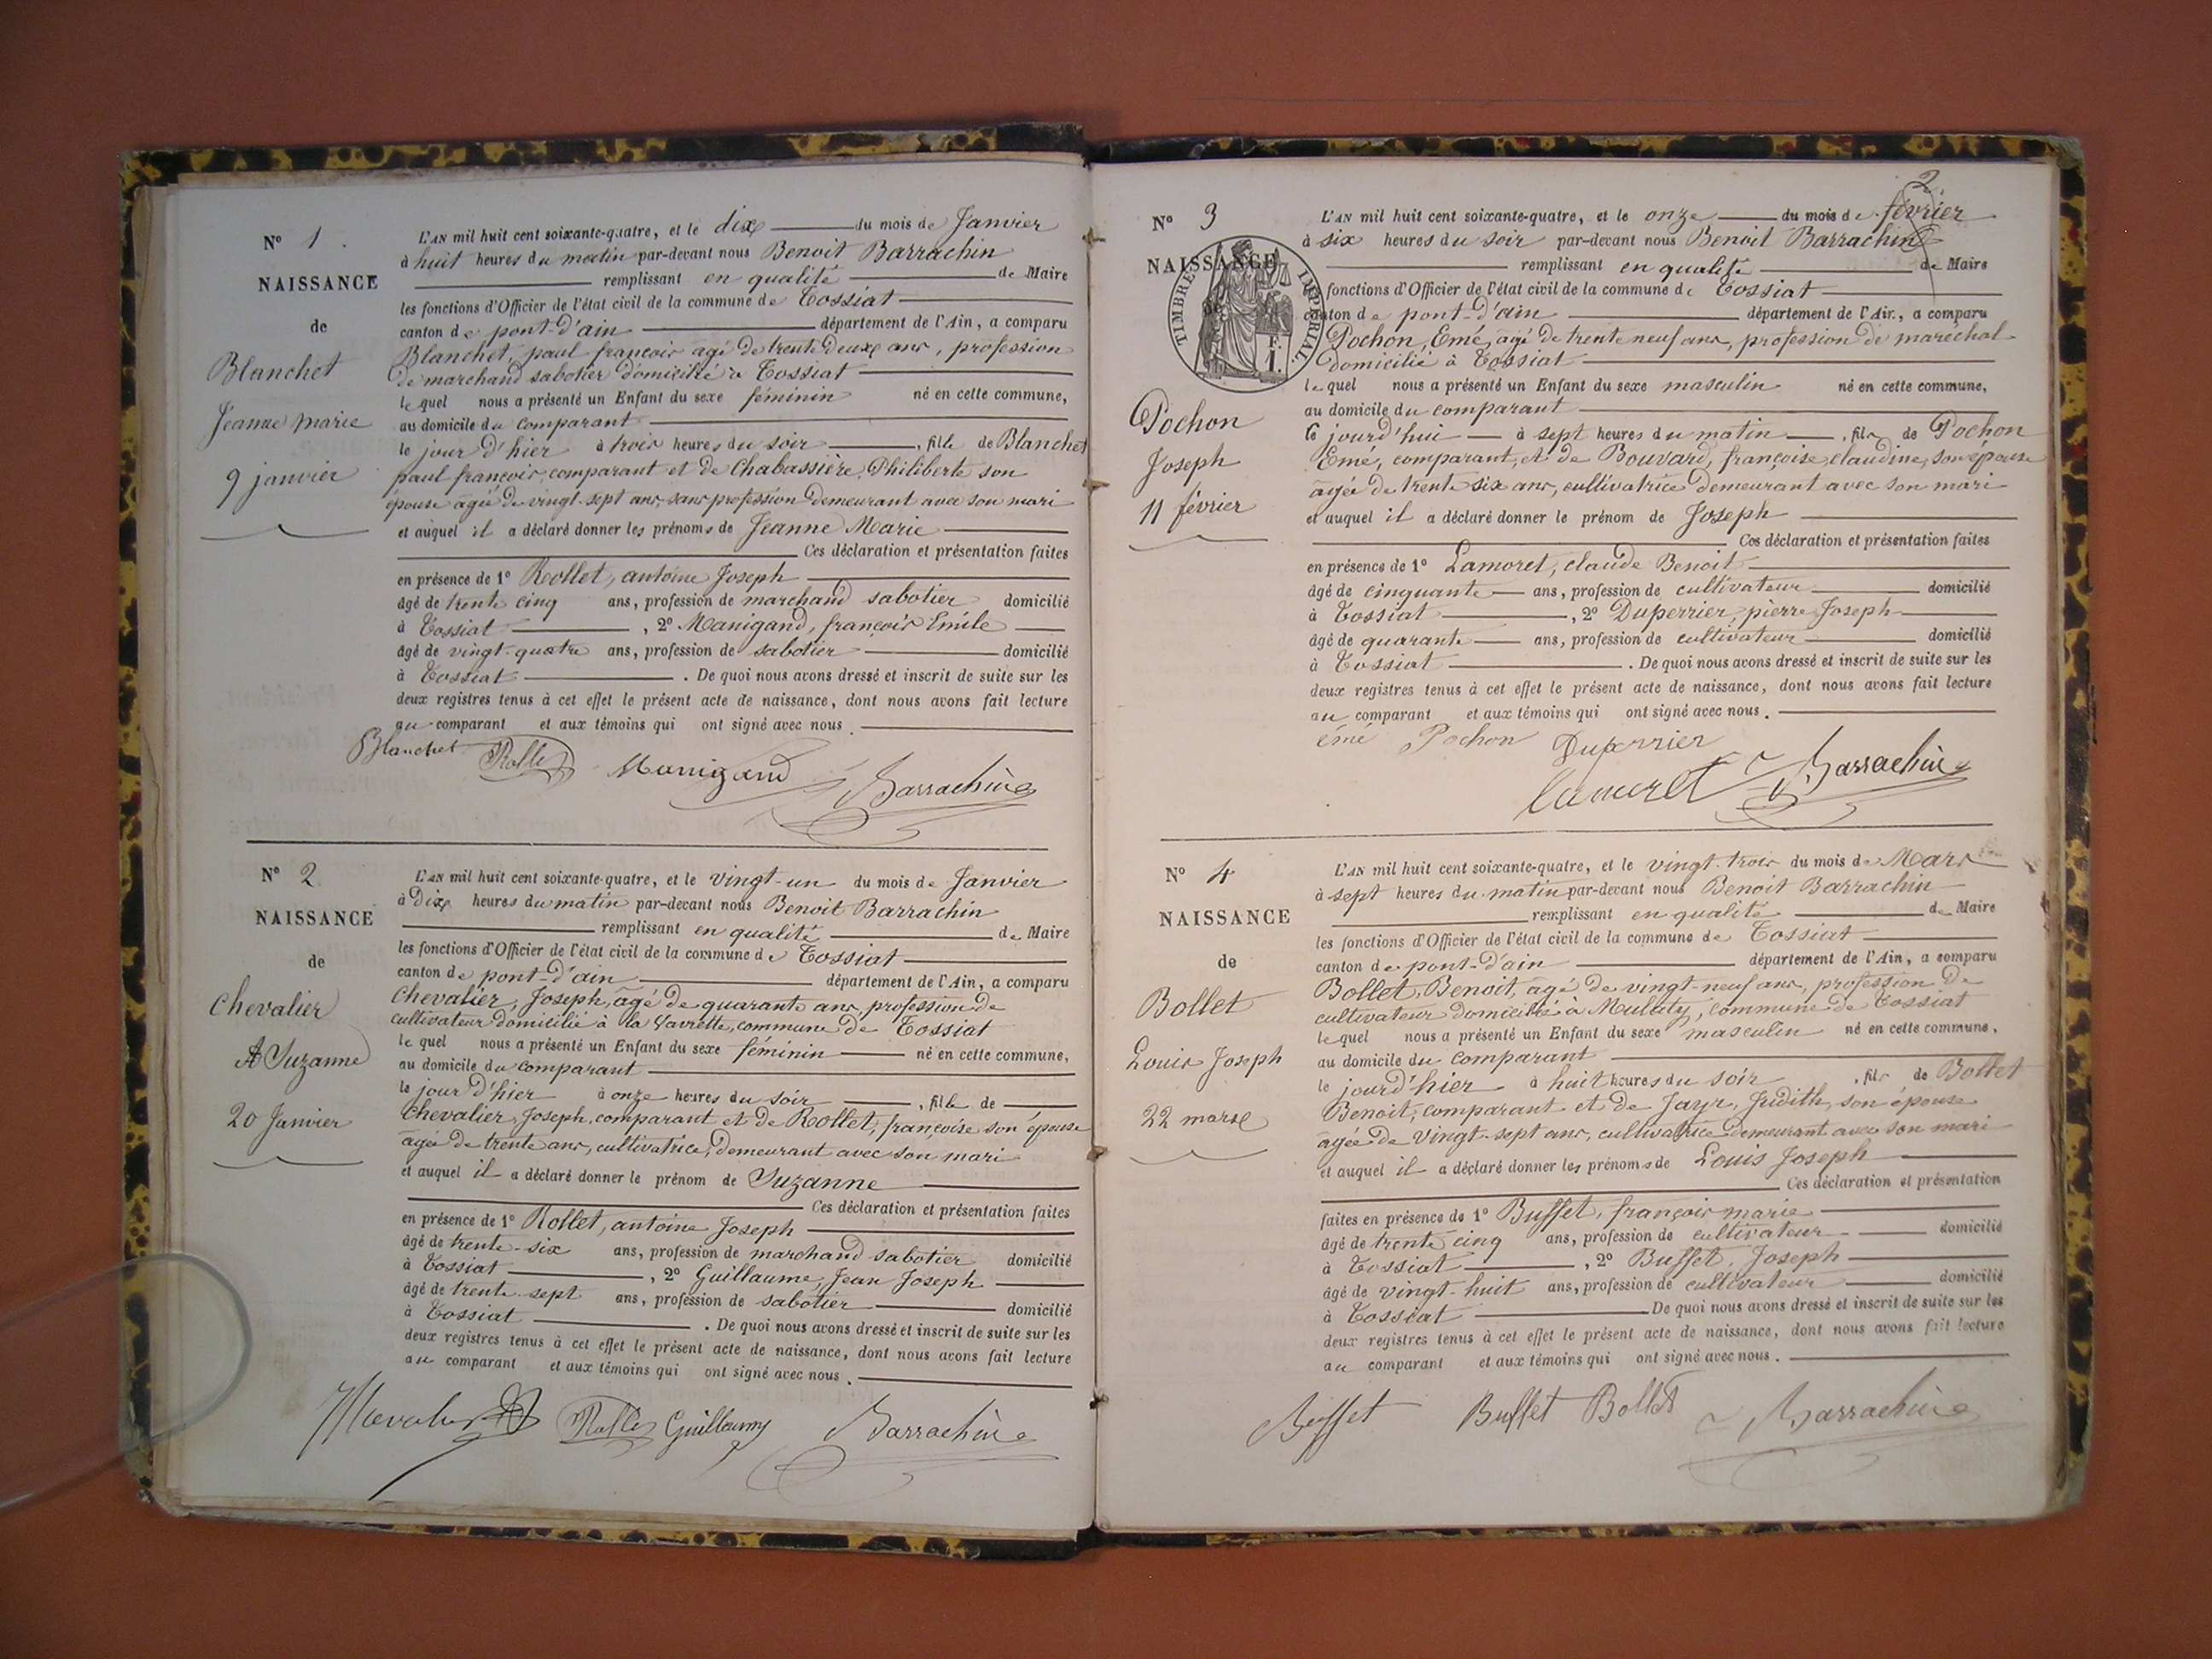 N° 1.
NAISSANCE
de
Blanchet
Jeanne marie
9 janvier
L'AN mil huit cent soixante-quatre, et le dix du mois de Janvier
à huit heures du matin par-devant nous Benoit Barrachin
remplissant en qualité de Maire
les fonctions d'Officier de l'état civil de la commune de Tossiat
canton de pont-d'ain département de l'Ain, a comparu
Blanchet, paul françois agé de trente deux ans, profession
de marchand sabotier domicilié à Tossiat
lequel nous a présenté un Enfant du sexe féminin né en cette commune,
au domicile du comparant
le jour d'hier à trois heures du soir, fille de Blanchet
paul françois, comparant et de Chabassière, Philiberte son
épouse agée de vingt-sept ans, sans profession demeurant avec son mari
et auquel il a déclaré donner les prénoms de Jeanne Marie
Ces déclaration et présentation faites
en présence de 1° Rollet, antoine Joseph
âgé de trente cinq ans, profession de marchand sabotier domicilié
à Tossiat, 2° Manigand, françois Emile
âgé de vingt-quatre ans, profession de sabotier domicilié
à Tossiat. De quoi nous avons dressé et inscrit de suite sur les
deux registres tenus à cet effet le présent acte de naissance, dont nous avons fait lecture
au comparant et aux témoins qui ont signé avec nous.
Blanchet Rollet Manigand Barrachin
N° 2
NAISSANCE
de
Chevalier
Suzanne
20 Janvier
L'AN mil huit cent soixante-quatre, et le vingt-un du mois de Janvier
à Dix heures du matin par-devant nous Benoit Barrachin
remplissant en qualité de Maire
les fonctions d'Officier de l'état civil de la commune de Tossiat
canton de pont-d'ain département de l'Ain, a comparu
Chevalier, Joseph, âgé de quarante ans, profession de
cultivateur domicilié à la Vavrette, commune de Tossiat
lequel nous a présenté un Enfant du sexe féminin né en cette commune,
au domicile du comparant
le jour d'hier à onze heures du soir, fille de
Chevalier, Joseph, comparant et de Rollet, françoise son épouse
agée de trente ans, cultivatrice, demeurant avec son mari
et auquel il a déclaré donner le prénom de Suzanne
Ces déclaration et présentation faites
en présence de 1° Rollet, antoine Joseph
âgé de trente-six ans, profession de marchand sabotier domicilié
à Tossiat, 2° Guillaume, Jean Joseph
âgé de trente-sept ans, profession de sabotier domicilié
à Tossiat. De quoi nous avons dressé et inscrit de suite sur les
deux registres tenus à cet effet le présent acte de naissance, dont nous avons fait lecture
au comparant et aux témoins qui ont signé avec nous.
Chevalier Rollet Guillaume Barrachin
2
N° 3
NAISSANCE
TIMBRE IMPERIAL
F. 1.
Pochon
Joseph
11 février
L'AN mil huit cent soixante-quatre, et le onze du mois de février
à six heures du soir par-devant nous Benoit Barrachin
remplissant en qualité de Maire
fonctions d'Officier de l'état civil de la commune de Tossiat
canton de pont-d'ain département de l'Ain, a comparu
Pochon, Emé, agé de trente neuf ans, profession de maréchal
domicilié à Tossiat
lequel nous a présenté un Enfant du sexe masculin né en cette commune,
au domicile du comparant
Ce jourd'hui à sept heures du matin, fils de Pochon
Emé, comparant, et de Bouvard, françoise claudine, son épouse
agée de trente six ans, cultivatrice demeurant avec son mari
et auquel il a déclaré donner le prénom de Joseph
Ces déclaration et présentation faites
en présence de 1° Lamoret, claude Benoit
âgé de cinquante ans, profession de cultivateur domicilié
à Tossiat, 2° Duperrier, pierre Joseph
âgé de quarante ans, profession de cultivateur domicilié
à Tossiat. De quoi nous avons dressé et inscrit de suite sur les
deux registres tenus à cet effet le présent acte de naissance, dont nous avons fait lecture
au comparant et aux témoins qui ont signé avec nous.
émé Pochon Duperrier
Lamoret Barrachin
N° 4
NAISSANCE
de
Bollet
Louis Joseph
22 mars
L'AN mil huit cent soixante-quatre, et le vingt-trois du mois de Mars
à sept heures du matin par-devant nous Benoit Barrachin
remplissant en qualité de Maire
les fonctions d'Officier de l'état civil de la commune de Tossiat
canton de pont-d'ain département de l'Ain, a comparu
Bollet, Benoit, agé de vingt-neuf ans, profession de
cultivateur domicilié à commune de Tossiat
lequel nous a présenté un Enfant du sexe masculin né en cette commune,
au domicile du comparant
le jourd'hier à huit heures du soir, fils de Bollet
Benoit, comparant et de Jayr, Judith, son épouse
agée de vingt-sept ans, cultivatrice demeurant avec son mari
et auquel il a déclaré donner les prénoms de Louis Joseph
Ces déclaration et présentation
faites en présence de 1° Buffet, françois marie
âgé de trente cinq ans, profession de cultivateur domicilié
à Tossiat, 2° Buffet, Joseph
âgé de vingt-huit ans, profession de cultivateur domicilié
à Tossiat De quoi nous avons dressé et inscrit de suite sur les
deux registres tenus à cet effet le présent acte de naissance, dont nous avons fait lecture
au comparant et aux témoins qui ont signé avec nous.
Buffet Buffet Bollet Barrachin